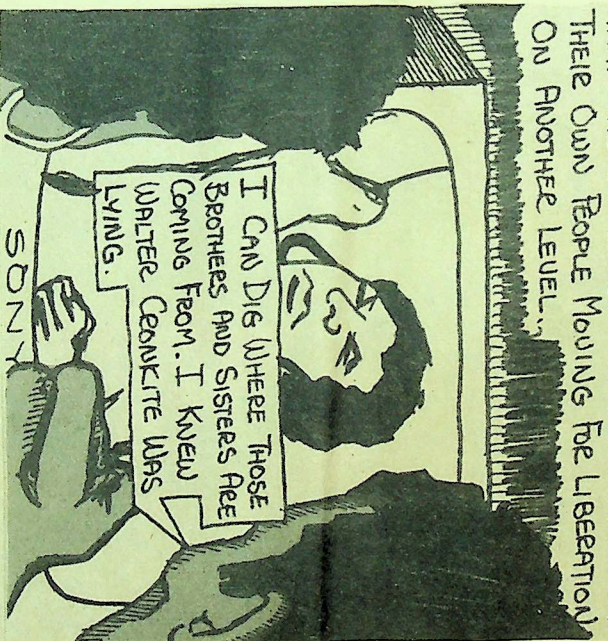 THEIR OWN PEOPLE MOVING FOR LIBERATION
ON ANOTHER LEVEL..
I CAN DIG WHERE THOSE
BROTHERS AND SISTERS ARE
COMING FROM. I KNEW
WALTER CRONKITE WAS
LYING.
SONY